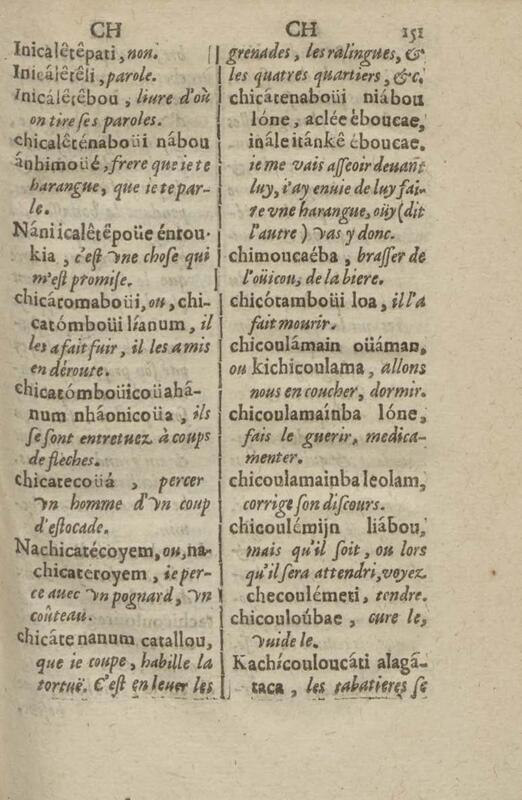 CH
CH
151
Inicalêtêpati, non.
Inicálêtêli, parole.
Inicálêtêbou, liure d'où
on tire ses paroles.
chicalêténaboüi nábou
ánhimoüé, frere que ie te
harangue, que ie te par-
le.
Náni icalêtêpoüe éntou-
kia, c'est vne chose qui
m'est promise.
chicátomaboüi, ou, chi-
catómboüi líanum, il
les a fait fuir, il les a mis
en déroute.
chicatómboüicoüahá-
num nháonicoüa, ils
se sont entretuez à coups
de fleches.
chicatecoüá, percer
vn homme d'vn coup
d'estocade.
Nachicatécoyem, ou, na-
chicateroyem, ie per-
ce auec vn pognard, vn
coûteau.
chicáte nanum catallou,
que ie coupe, habille la
tortuë. C'est en leuer les
grenades, les ralingues, &
les quatres quartiers, &c.
chicátenaboüi niábou
lóne, aclée éboucae,
inále itánkê éboucae.
ie me vais asseoir deuant
luy, i'ay enuie de luy fai-
re vne harangue, oüy (dit
l'autre) vas y donc.
chimoucaéba, brasser de
l'oüicou, de la biere.
chicótamboüi loa, il l'a
fait mourir.
chicoulámain oüáman,
ou kichicoulama, allons
nous en coucher, dormir.
chicoulamaínba lóne,
fais le guerir, medica-
menter.
chicoulamainba leolam,
corrige son discours.
chicoulémijn liábou,
mais qu'il soit, ou lors
qu'il sera attendri, voyez
checoulémeti, tendre.
chicouloúbae, cure le,
vuide le.
Kachícouloucáti alagá-
taca, les tabatieres se